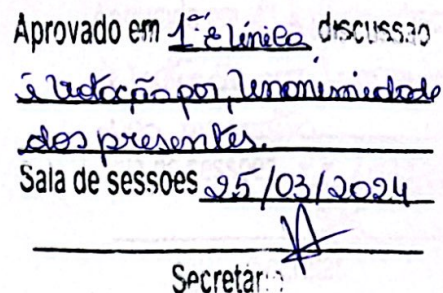 Aprovado em 1ª e única discussão
e votação por, Unanimidade
dos presentes.
Sala de sessões 25/03/2024
Secretário